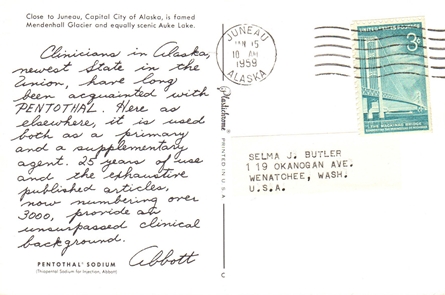 Close to Juneau, Capital City of Alaska, is famed
Mendenhall Glacier and equally scenic Auke Lake.
Clinicians in Alaska,
newest State in the
Union, have long
been acquainted with
PENTOTHAL. Here as
elsewhere, it is used
both as a primary
and a supplementary
agent. 25 years of use
and the exhaustive
published articles,
now numbering over
3000, provide an
unsurpassed clinical
background.
Abbott
PENTOTHAL® SODIUM
(Thiopental Sodium for Injection, Abbott)
Plastichrome®
PRINTED IN U.S.A.
C
JUNEAU
JAN 15
10 AM
1959
ALASKA
UNITED STATES POSTAGE
3¢
MACKINAC BRIDGE
SELMA J. BUTLER
119 OKANOGAN AVE.
WENATCHEE, WASH.
U.S.A.